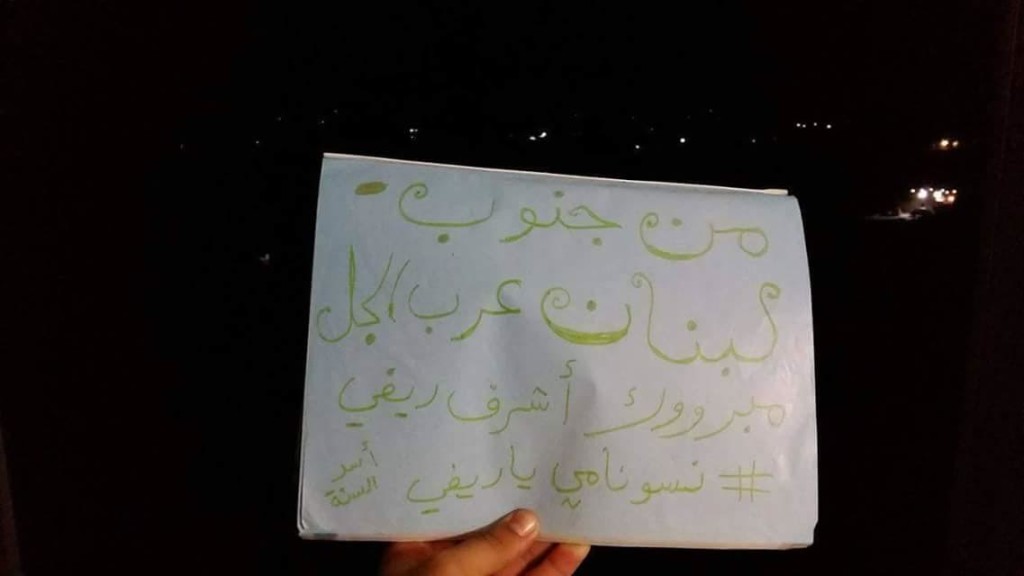 من جنوب -
لبنان عرب الجل
مبرووك أشرف ريفي
# تسونامي ياريفي
أسد
السنة